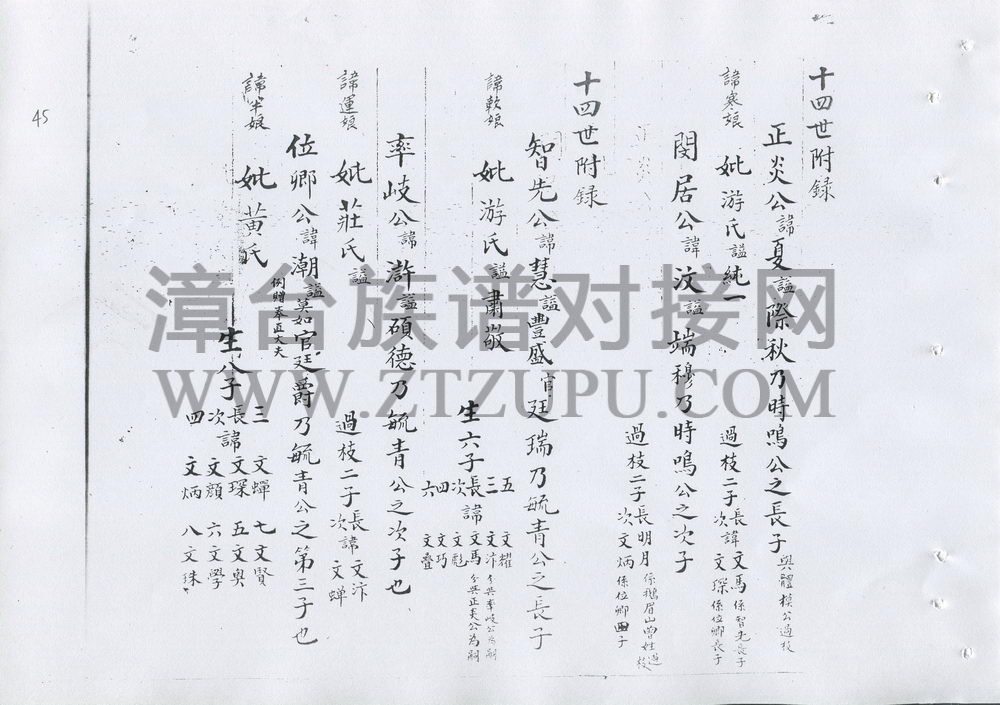 十四世附录
正炎公諱夏謚際秋乃時鳴公之長子與體模公過枝
諱寒娘 妣游氏謚純一 過枝二子長諱文馬係智先長子
次文琛係位卿長子
閔居公諱汶謚端穆乃時鳴公之次子
過枝二子長明月係鵝眉山曾姓過枝
次文炳係位卿四子
十四世附录
智先公諱慧謚豐盛官廷瑞乃毓青公之長子
諱軟娘 妣游氏謚肅敬 生六子長諱文馬分與正炎公為嗣
次文彪
三文汴分與率岐公為嗣
四文巧
五文耀
六文疊
率岐公諱澣謚碩德乃毓青公之次子也
諱運娘 妣莊氏謚 過枝二子長諱文汴
次文蟬
位卿公諱潮謚莫如官廷爵乃毓青公之第三子也
例贈奉直大夫
諱半娘 妣黃氏 生八子長諱文琛
次文顏
三文蟬
四文炳
五文奥
六文學
七文賢
八文珠
45
漳台族谱对接网
WWW.ZTZUPU.COM